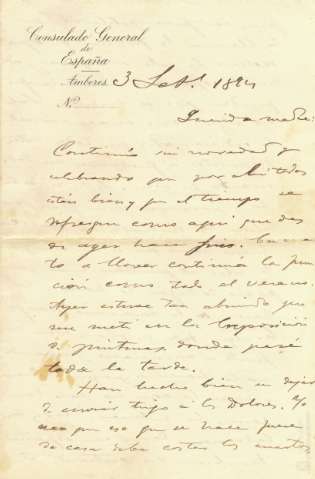 Consulado General
de
España
Amberes 3 Set. 1894
Nº
Querida madre:
Continúo sin novedad y
celebrando que por ahí todos
estén bien y que el tiempo se
refresque como aquí que des
de ayer hace frio. Cuan
to a llover continúa la fun
ción como todo el verano.
Ayer estuve tan aburrido que
me metí en la Exposición
de pinturas donde pasé
toda la tarde.
Han hecho bien en dejar
de enviar trigo a los Dolores. Yo
creo que eso que se hace fuera
de casa debe costar los cuartos